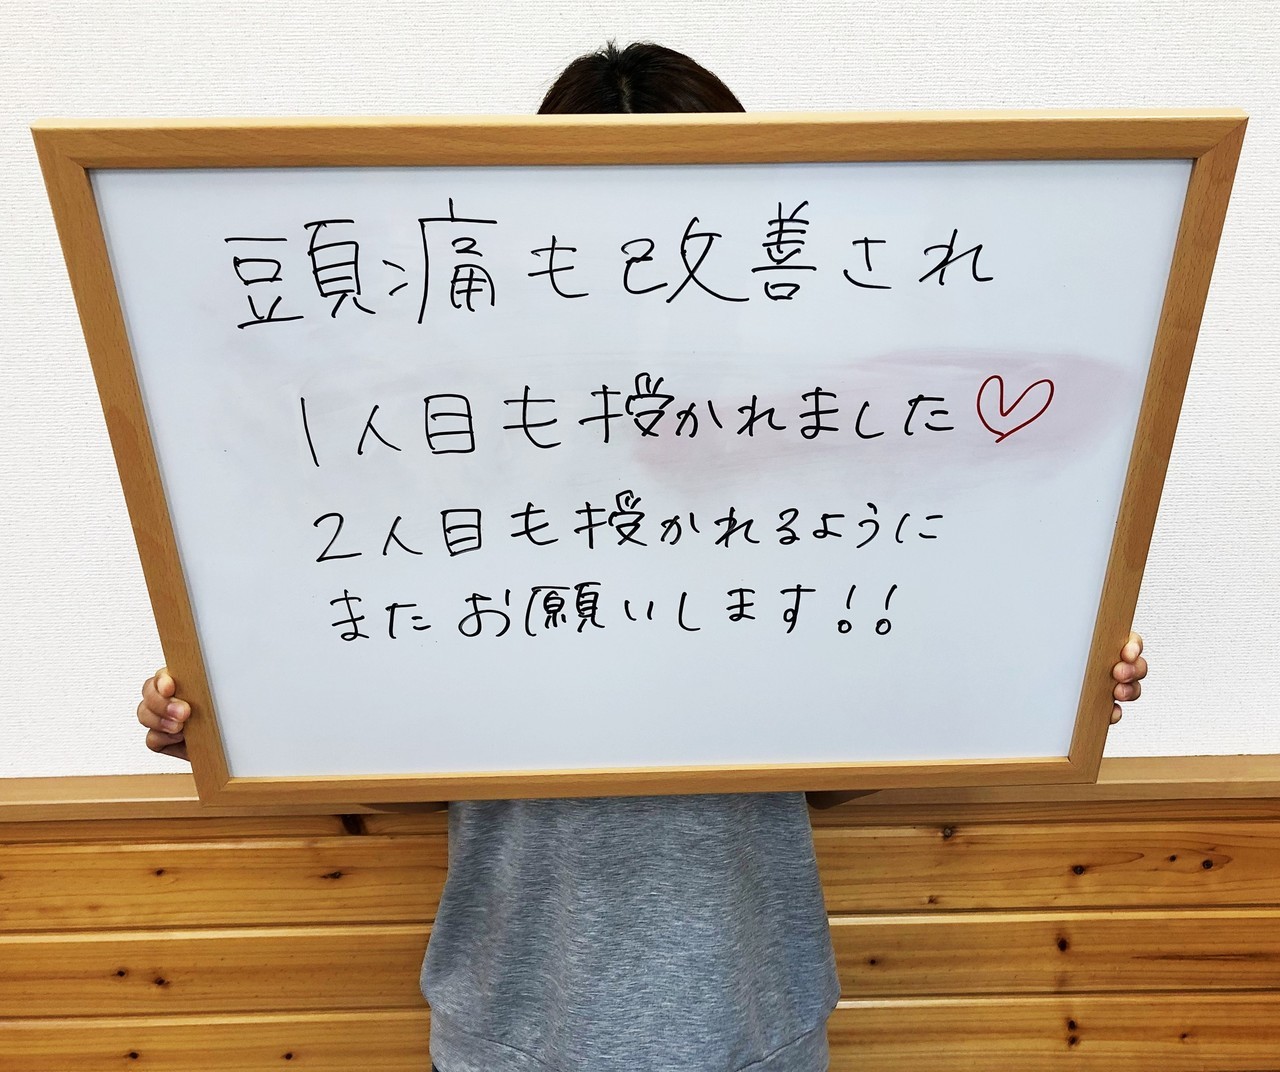 頭痛も改善され
1人目も授かれました♡
2人目も授かれるように
またお願いします!!